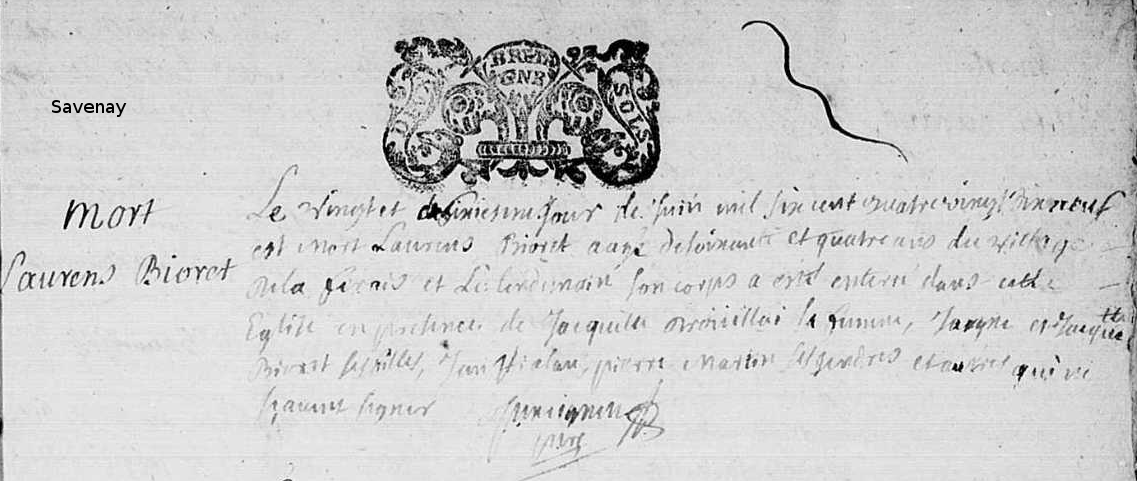 Savenay
BRETA
GNE
SOLS
mort
Laurens Bioret
Le vingt et jour de Juin mil six cent quatre vingt dix neuf
est mort Laurens Bioret aagé de soixante et quatre ans du village
de la et Le lendemain son corps a esté enterré dans cette
Eglise en presence de Jacquette sa femme, et Jacquette
Bioret ses filles, Jan pierre Martin ses gendres et autres qui ne
sçavent signer